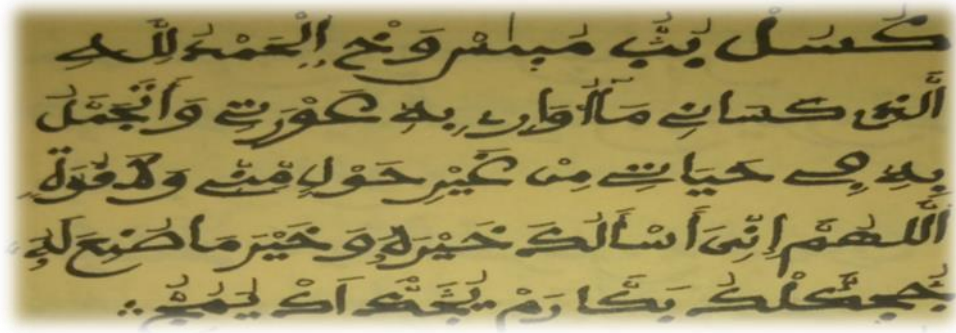 كُسُلْ بُبُّ اِلْحَمْدُ لِلَّهِ
اَلَّذِى كَسَانِے مَا أُوَارِے بِهِ عَوْرَتِے وَأَتَجَمَّلُ
بِهِ فِے حَيَاتِے مِنْ غَيْرِ حَوْلٍ مِّنِّے وَلَا قُوَّةٍ
اَللَّهُمَّ إِنِّىَ أَسْأَلُكَ خَيْرَهُ وَ خَيْرَ مَا صُنِعَ لَهُ
بَكَّارَمْ اَكْ